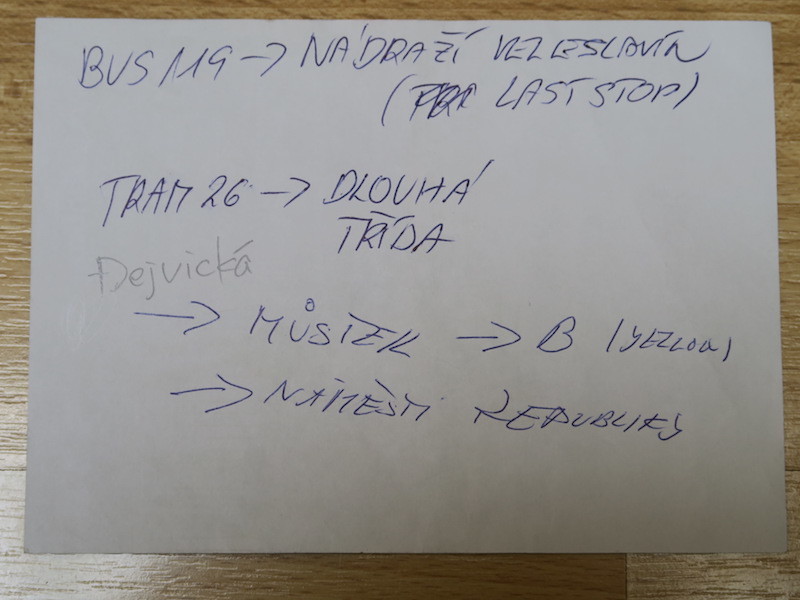 BUS 119 → NÁDRAŽÍ VELESLAVÍN
( LAST STOP)
TRAM 26 → DLOUHÁ
TŘÍDA
Dejvická
→ MŮSTEK → B (YELLOW)
→ NÁMĚSTÍ REPUBLIKY